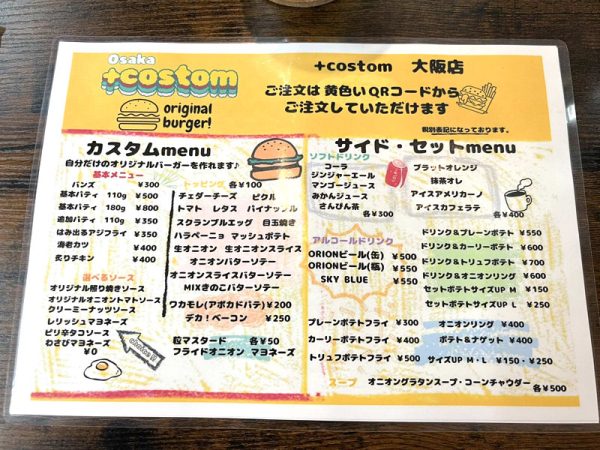 Osaka
+costom
original
burger!
+costom 大阪店
ご注文は 黄色い QRコードから
ご注文していただけます
税別表記になっております。
カスタムmenu
自分だけのオリジナルバーガーを作れます♪
基本メニュー
バンズ ¥300
基本パティ 110g ¥500
基本パティ 180g ¥800
追加パティ 110g ¥350
はみ出るアジフライ ¥350
海老カツ ¥400
炙りチキン ¥400
選べるソース
オリジナル照り焼きソース
オリジナルオニオントマトソース
クリーミーナッツソース
レリッシュマヨネーズ
ピリ辛タコソース
わさびマヨネーズ
¥0
トッピング 各¥100
チェダーチーズ ピクル
トマト レタス パイナップル
スクランブルエッグ 目玉焼き
ハラペーニョ マッシュポテト
生オニオン 生オニオンスライス
オニオンバターソテー
オニオンスライスバターソテー
MIXきのこバターソテー
ワカモレ(アボカドパテ) ¥200
デカ!ベーコン ¥250
粒マスタード 各¥50
フライドオニオン マヨネーズ
サイド・セットmenu
ソフトドリンク
コーラ
ジンジャーエール
マンゴージュース
みかんジュース
さんぴん茶
各¥300
ブラットオレンジ
抹茶オレ
アイスアメリカーノ
アイスカフェラテ
各¥400
アルコールドリンク
ORIONビール(缶) ¥500
ORIONビール(瓶) ¥550
SKY BLUE ¥550
ドリンク&プレーンポテト ¥550
ドリンク&カーリーポテト ¥600
ドリンク&トリュフポテト ¥700
ドリンク&オニオンリング ¥600
セットポテトサイズUP M ¥150
セットポテトサイズUP L ¥250
プレーンポテトフライ ¥300
カーリーポテトフライ ¥400
トリュフポテトフライ ¥500
オニオンリング ¥400
ポテト&ナゲット ¥400
サイズUP M・L ¥150・¥250
スープ オニオングラタンスープ・コーンチャウダー
各¥500